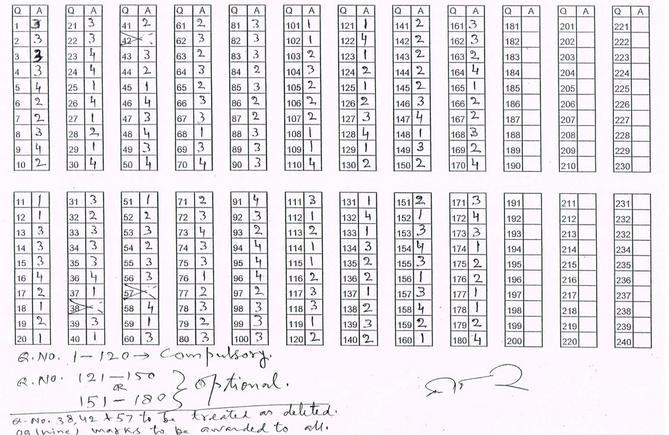 Q A Q A Q A Q A Q A Q A Q A Q A Q A Q A Q A Q A
1 3 21 3 41 2 61 2 81 3 101 1 121 1 141 2 161 3 181 201 221
2 3 22 3 42 62 3 82 3 102 1 122 4 142 2 162 3 182 202 222
3 3 23 4 43 3 63 2 83 3 103 2 123 1 143 2 163 2 183 203 223
4 3 24 4 44 2 64 3 84 2 104 3 124 2 144 2 164 4 184 204 224
5 4 25 1 45 1 65 2 85 3 105 2 125 1 145 2 165 1 185 205 225
6 2 26 4 46 4 66 3 86 2 106 2 126 2 146 3 166 2 186 206 226
7 2 27 1 47 3 67 2 87 2 107 2 127 3 147 4 167 2 187 207 227
8 3 28 2 48 4 68 1 88 3 108 1 128 4 148 1 168 3 188 208 228
9 4 29 1 49 3 69 3 89 3 109 1 129 1 149 3 169 2 189 209 229
10 2 30 4 50 4 70 3 90 3 110 4 130 2 150 2 170 4 190 210 230
11 1 31 3 51 1 71 2 91 4 111 3 131 1 151 2 171 3 191 211 231
12 1 32 2 52 2 72 3 92 3 112 1 132 4 152 1 172 4 192 212 232
13 3 33 3 53 3 73 4 93 2 113 2 133 1 153 3 173 3 193 213 233
14 3 34 3 54 2 74 3 94 4 114 1 134 3 154 4 174 1 194 214 234
15 3 35 3 55 3 75 3 95 4 115 1 135 2 155 3 175 2 195 215 235
16 4 36 4 56 3 76 1 96 4 116 2 136 2 156 1 176 2 196 216 236
17 2 37 1 57 77 2 97 2 117 3 137 1 157 3 177 1 197 217 237
18 1 38 58 4 78 2 98 3 118 3 138 2 158 4 178 1 198 218 238
19 2 39 3 59 1 79 2 99 3 119 1 139 3 159 2 179 2 199 219 239
20 1 40 1 60 3 80 3 100 3 120 2 140 2 160 1 180 4 200 220 240
Q.NO. 1–120 → Compulsory.
Q.NO. 121–150
OR } Optional.
151–180
Q.No. 38,42 & 57 to be treated as deleted.
09(nine) marks to be awarded to all.